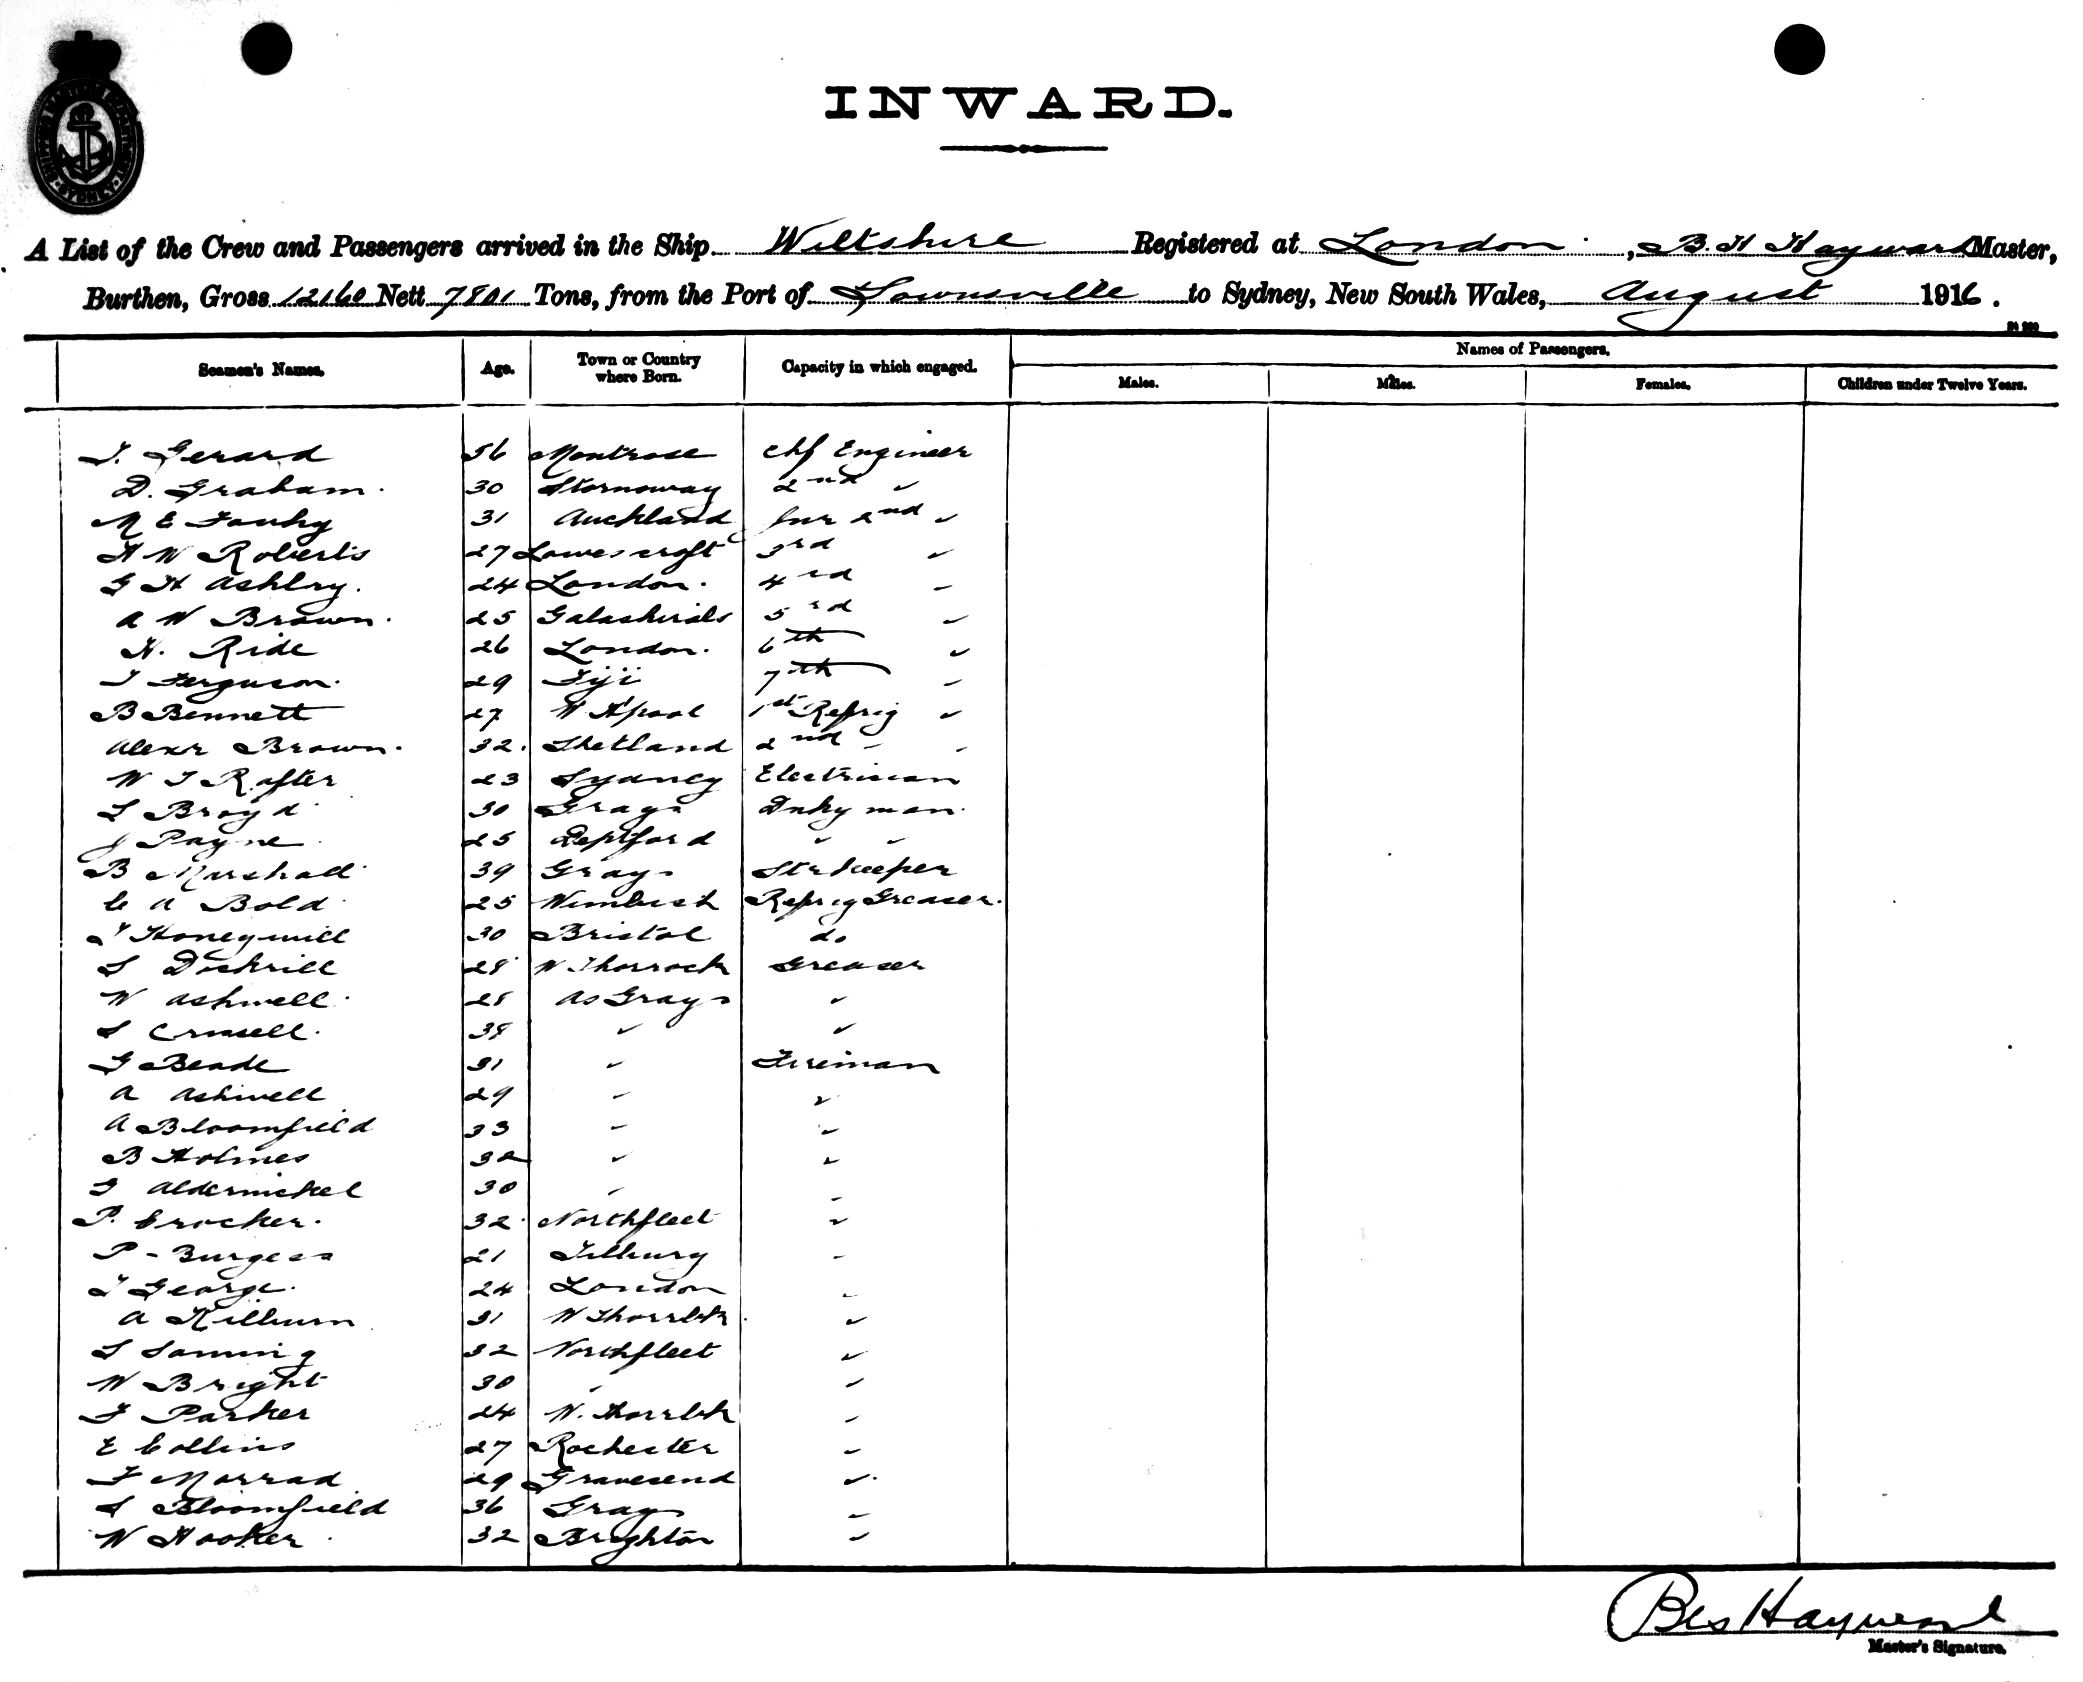 INWARD.
A List of the Crew and Passengers arrived in the Ship Wiltshire Registered at London, B. H Hayward Master,
Burthen, Gross 12160 Nett 7801 Tons, from the Port of Townsville to Sydney, New South Wales, August 1916.
Seamen's Names. Age. Town or Country where Born. Capacity in which engaged. Names of Passengers.
Males. Males. Females. Children under Twelve Years.
J. Gerard 56 Montrose Chf Engineer
D. Graham. 30 Stornoway 2nd "
M E 31 Auckland Jnr 2nd "
H W Roberts 27 Lowescroft 3rd "
G H Ashley. 24 London. 4rd "
A W Brown. 25 Galashiels 5rd "
H. Ride 26 London. 6th "
J Ferguson. 29 Fiji 7th "
B Bennett 27 W H'pool 1st Refrig "
Alexr Brown. 32. Shetland 2nd " "
W J Rafter 23 Sydney Electrician
L Broyd 30 Grays Dnky man.
J Payne 25 Deptford " "
B Marshall 39 Grays Strkeeper
C A Bold 25 Wimbish Refrig Greaser.
J Honeywill 30 Bristol do
S Dockrill 28 W Thorrock Greaser
W Ashwell. 28 As Grays "
S 38 " "
G Beade 31 " Fireman
A Ashwell 29 " "
A Bloomfield 33 " "
B Holmes 32 " "
G 30 " "
P. Crocker. 32. Northfleet "
P - Burgess 21 Tilbury "
J George. 24 London "
A Kilburn 31 W Thorrbk "
S 32 Northfleet "
W Bright 30 " "
F Parker 24 W. Thorrbk "
E Collins 27 Rochester "
F Morrad 29 Gravesend "
S Bloomfield 36 Grays "
W Hooker. 32 Brighton "
Hayward
Master's Signature.